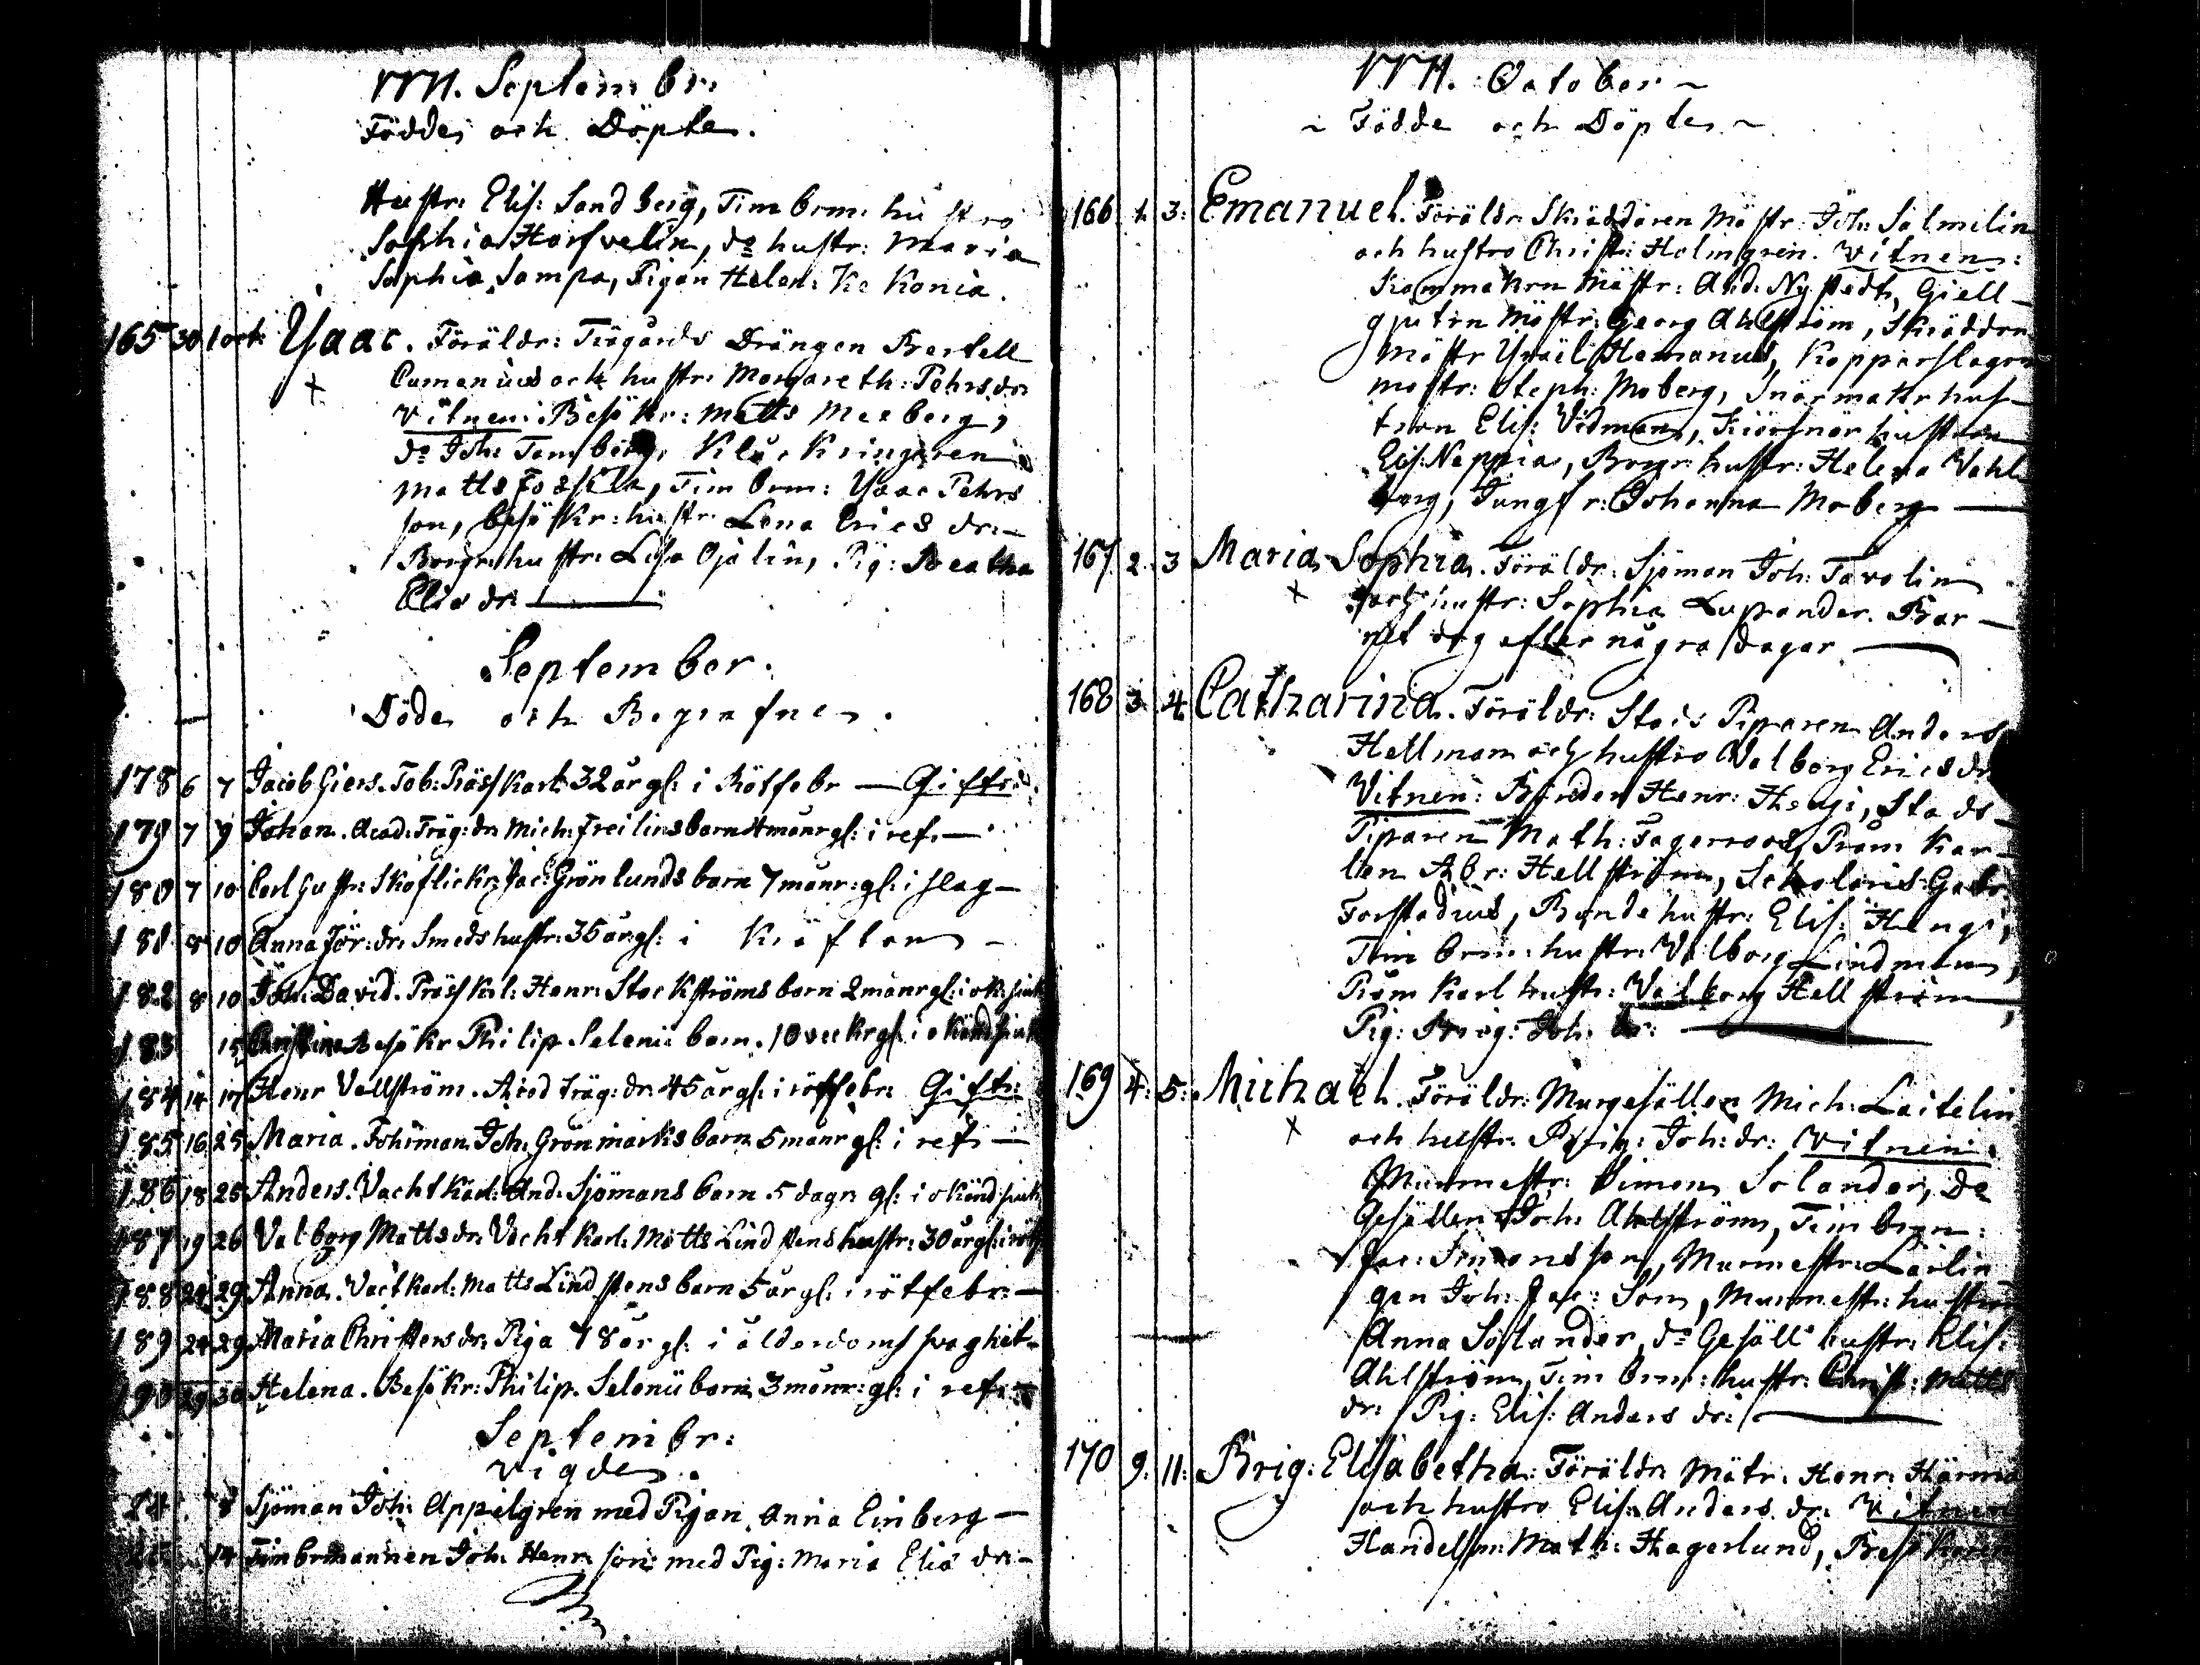 September:
Födde och Döpte.
Hustr: Elis: Sandberg, Timberm: hustro
Sophia Harfvelin, do hustr: Maria
Sophia Sampa, Pigan Helen: Kekonia.
165 30 1 oct: Ysaac. Föräldr: Trägårds Drängen Bertell
Cumenius och hustr: Margareth: Pehrsdr:
Vitnen: Besökr: Matts Meeberg,
do Joh: Tamberg, Klåckringaren
Matts, Timberm: Ysaac Pehrs
son, besökr: hustr: Lena Erics dr:
Borgr: hustr: Lisa Ojalin, Pig: Beatha
Elis dr:
September.
Döde och Begrafne.
178 6 7 Jacob Giers. Tob: Präss Karl 32 år gl: i Rötfebr — Gift:
179 7 9 Johan. Acad: Träg: dr: Mich: Freilins barn 4 mânr gl: i ref: —
180 7 10 Carl Gustr: Skoflickr: Jac: Grönlunds barn 7 mânr: gl: i slag —
181 8 10 Anna Jör: dr: Smeds hustr: 35 år gl: i Kräftan —
182 8 10 Joh: David. Präss Krl: Henr: Stockströms barn 2 mânr gl: i ok: siuk
183 15 Christina Besökr Philip Seleni barn. 10 veckr gl: i okänd siuk
184 14 17 Henr Vallström. Acad Träg: dr: 45 år gl: i rötfebr: Gift:
185 16 25 Maria. Fohrman Joh: Grönmarks barn 5 mânr gl: i ref: —
186 18 25 Anders. Vachtkarl: And: Sjömans barn 5 dagr gl: i okänd siuk
187 19 26 Valborg Matts dr: Vacht Karl: Matts Lindstens hustr: 30 år gl: i röt
188 24 29 Anna. Vactkarl: Matts Lindstens barn 5 år gl: i rötfebr: —
189 24 29 Maria Christers dr: Piga 78 år gl: i ålderdoms svaghet —
190 29 30 Helena. Besökr: Philip. Selenii barn 3 mânr: gl: i ref: —
Septembr:
Vigde.
24 8 Sjöman Joh: Appelgren med Pigan Anna Einberg —
14 Timbermannen Joh: Henr: son med Pig: Maria Elis dr: —
October ~
~ Födde och Döpte ~
166 1. 3: Emanuel. Föräldr: Skräddaren Mästr: Joh: Salmelin
och hustro Christ: Holmgren. Vitnen:
Kammakrn Mästr: And: Nystedt, Giell-
gjutrn Mästr: Georg Ahlström, Skräddrn
Mästr Ysrāil Hemanus, Kopparslagrn
mästr: Steph: Moberg, Snörmakr hus-
tron Elis: Vidman, Kiörsnär hustron
Elis: Neppia, Borgr: hustr: Helena Vahl
berg, Jungfr: Johanna Moberg —
167 2. 3 Maria Sophia. Föräldr: Sjöman Joh: Tavolin
och hustr: Sophia Lupander. Bar-
net dog efter några dagar —
168 3. 4 Catharina. Föräldr: Stads Piparen Anders
Hellman och hustro Valborg Erics dr
Vitnen: Bonden Henr: Hengi, Stads
Piparen Math: Fagerroos, Pråm Kar-
len Abr: Hellström, Scholaris Gabr:
Forstadius, Bonde hustr: Elis: Hengi,
Timberm: hustr: Valborg Lindman,
Pråm Karl hustr: Valborg Hellström,
Pig: Brig: Joh: dr:
169 4: 5: Michael. Föräldr: Murgesällen Mich: Laitelin
och hustr: Brig: Joh: dr: Vitnen:
Murmestr: Simon Solander, do
Gesällen Joh: Ahlström, Timberm:
Jac: Simonsson, Murmestr: Lärlin
gen Joh: Jac: Son, Murmestr: hustron
Anna Solander, do Gesäll hustr: Elis:
Ahlström, Timberm: hustr: Christ: Matts
dr: Pig: Elis: Anders dr:
170 9: 11: Brig: Elisabetha: Föräldr: Mätr: Henr: Härma
och hustro Elis: Anders dr: Vitnen
Handelsm: Math: Hagerlund, Besökaren